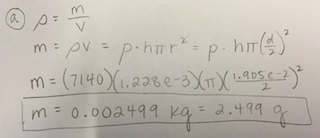 ⓐ ρ = m/V
m = ρV = ρ·hπr² = ρ·hπ(d/2)²
m = (7140)(1.228e-3)(π)(1.905e-2/2)²
m = 0.002499 kg = 2.499 g